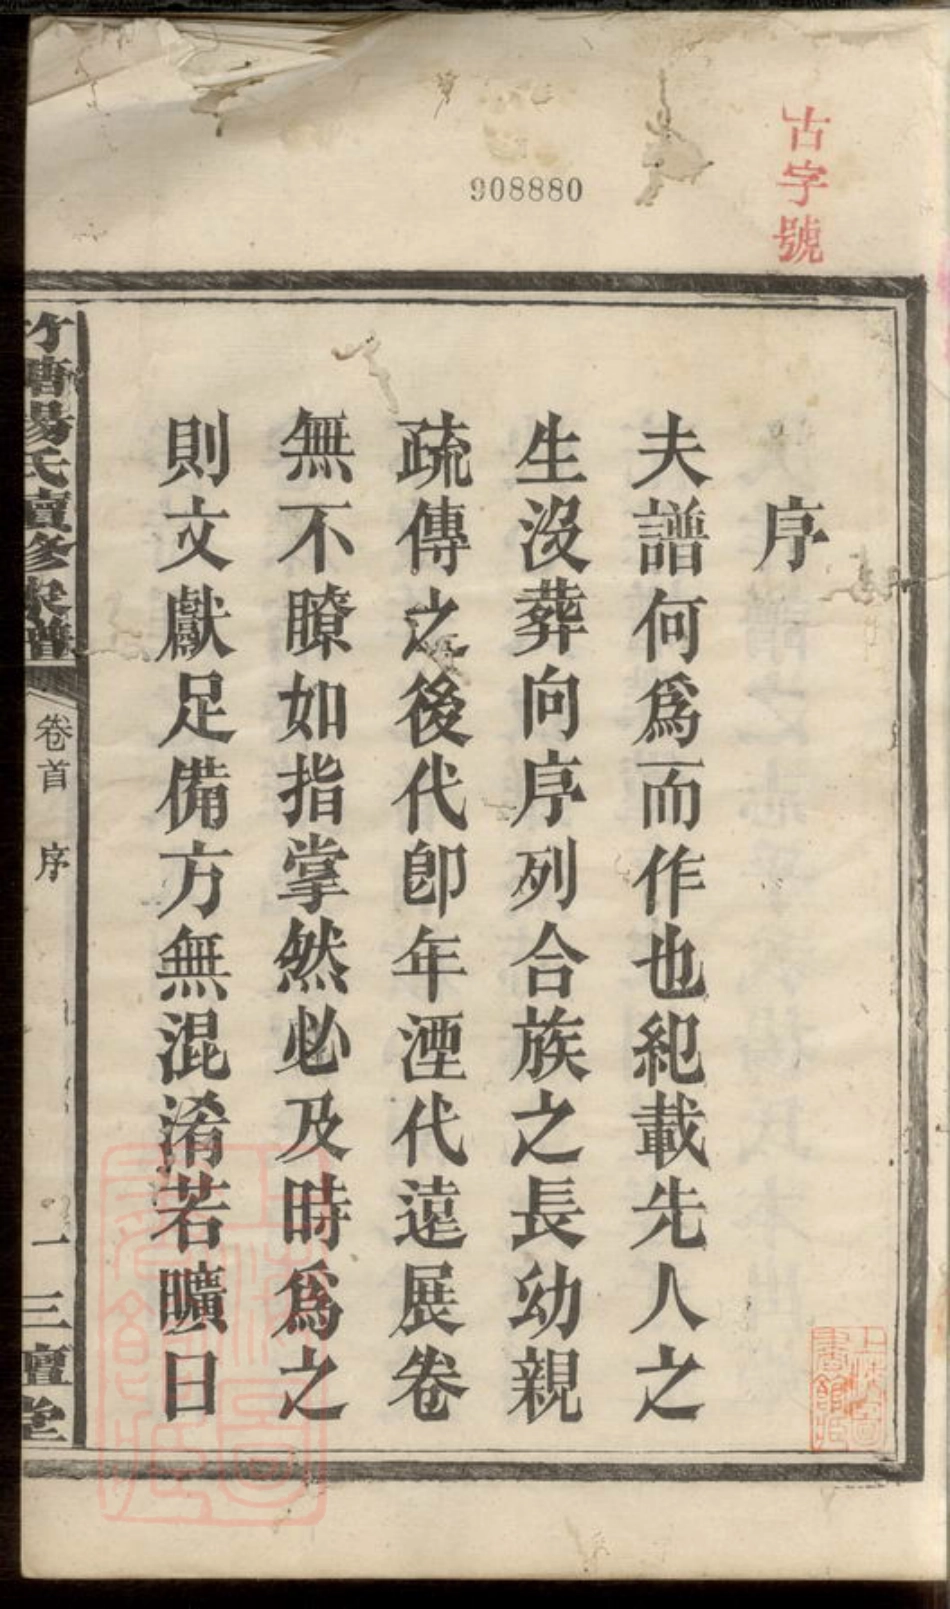 古字號
908880
序
夫譜何爲而作也紀載先人之
生沒葬向序列合族之長幼親
疏傳之後代卽年湮代遠展卷
無不瞭如指掌然必及時爲之
則文獻足備方無混淆若曠日
氏續修家譜
卷首
序
一
三
堂
上海圖書館藏